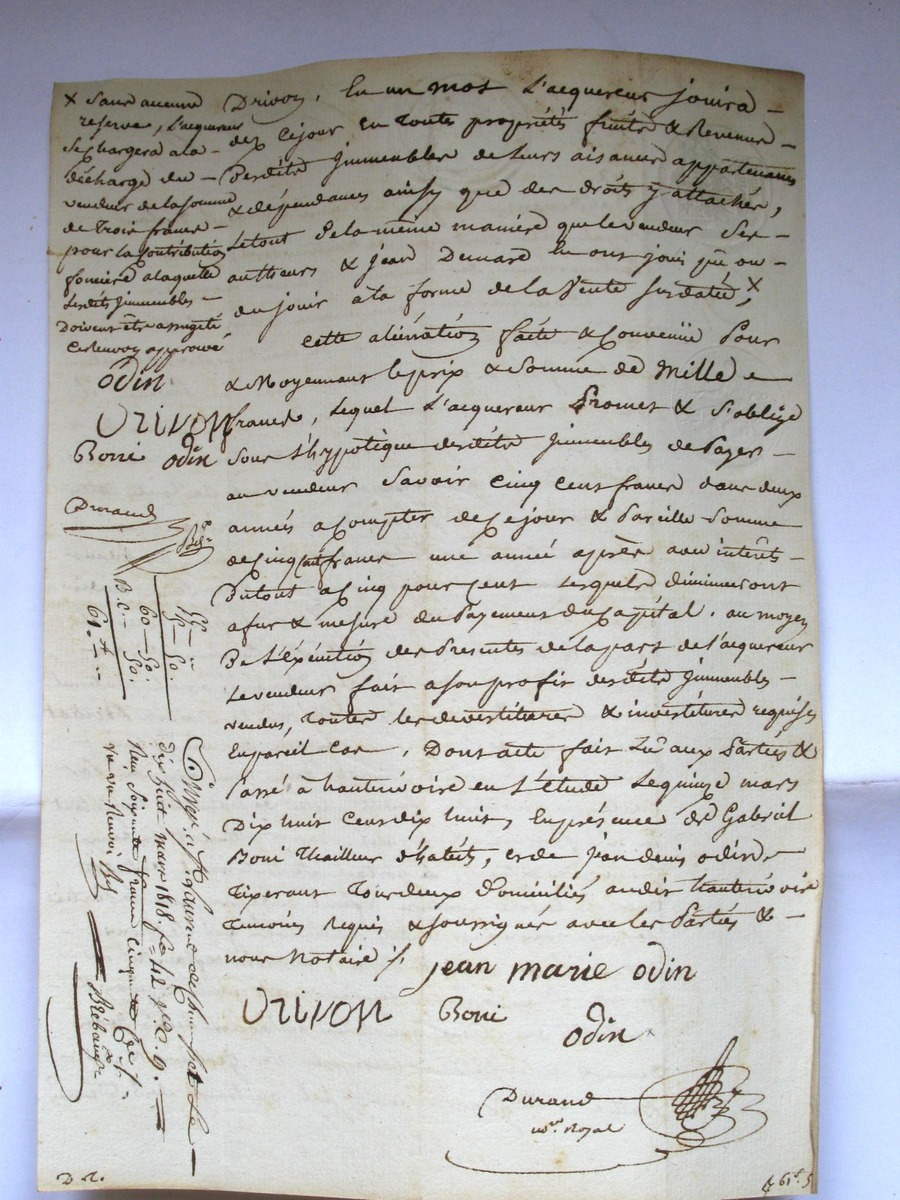 Drivon. En un mot L'acquereur jouira
des cejour En toutes propriétés fruits & Revenus
Desdits Immeubles de leurs aisances appartenances
& dépendances ainsy que des droits y attachés,
Letout de la même manière que le vendeur Ses
autheurs & jean Durand En ont joui pû ou
du jouir a la forme de la Vente susdatée, X
cette aliénation faite & Convenüe Pour
& Moyennant le prix & Somme de Mille
francs, Lequel L'acquereur Promet & S'oblige
Sous L'hypotèque desdits Immeubles de Payer
au vendeur Savoir Cinq Cens francs dans deux
années a Compter de Cejour & Pareille Somme
de Cinq Cent francs une année après avec intérêts
Dutout a Cinq pour Cent Lesquels diminueront
a fur & mesure du Payement du Capital. au moyen
De L'exécution des Presentes de la part de l'acquereur
Le vendeur fait a son profit desdits Immeubles
vendus, toutes les devestitures & investitures requises
En pareil Cas. Dont acte fait Lu aux Parties &
Passé à hauterivoire en L'étude Le quinze mars
Dix huit Cens dix huit, En présence de Gabriel
Boni Thailleur d'habits, et de jean denis odin
Tixerant Tous deux Domiciliés audit hauterivoire
Temoins Requis & soussignés avec les Parties &
nous Notaire ./.
jean marie odin
Drivon Boni
odin
Durand
no.re Royal
X Sans aucune
réserve, L'acquereur
Se chargera a la
décharge du
vendeur de la somme
de Trois francs
pour la Contribution
foncière a laquelle
Lesdits Immeubles
Doivent être assugeté
Ce Renvoy approuvé
odin
Drivon
Boni odin
Durand
55 -
5 - 50.
60 - 50.
D. C. - 50.
61. - -
Enregé à St Laurent de Chamousset Le
dix huit mars 1818. fo 42 Vo C. 9.
Reçu Soixante francs cinquante Ces
D. R.
61 f. 5